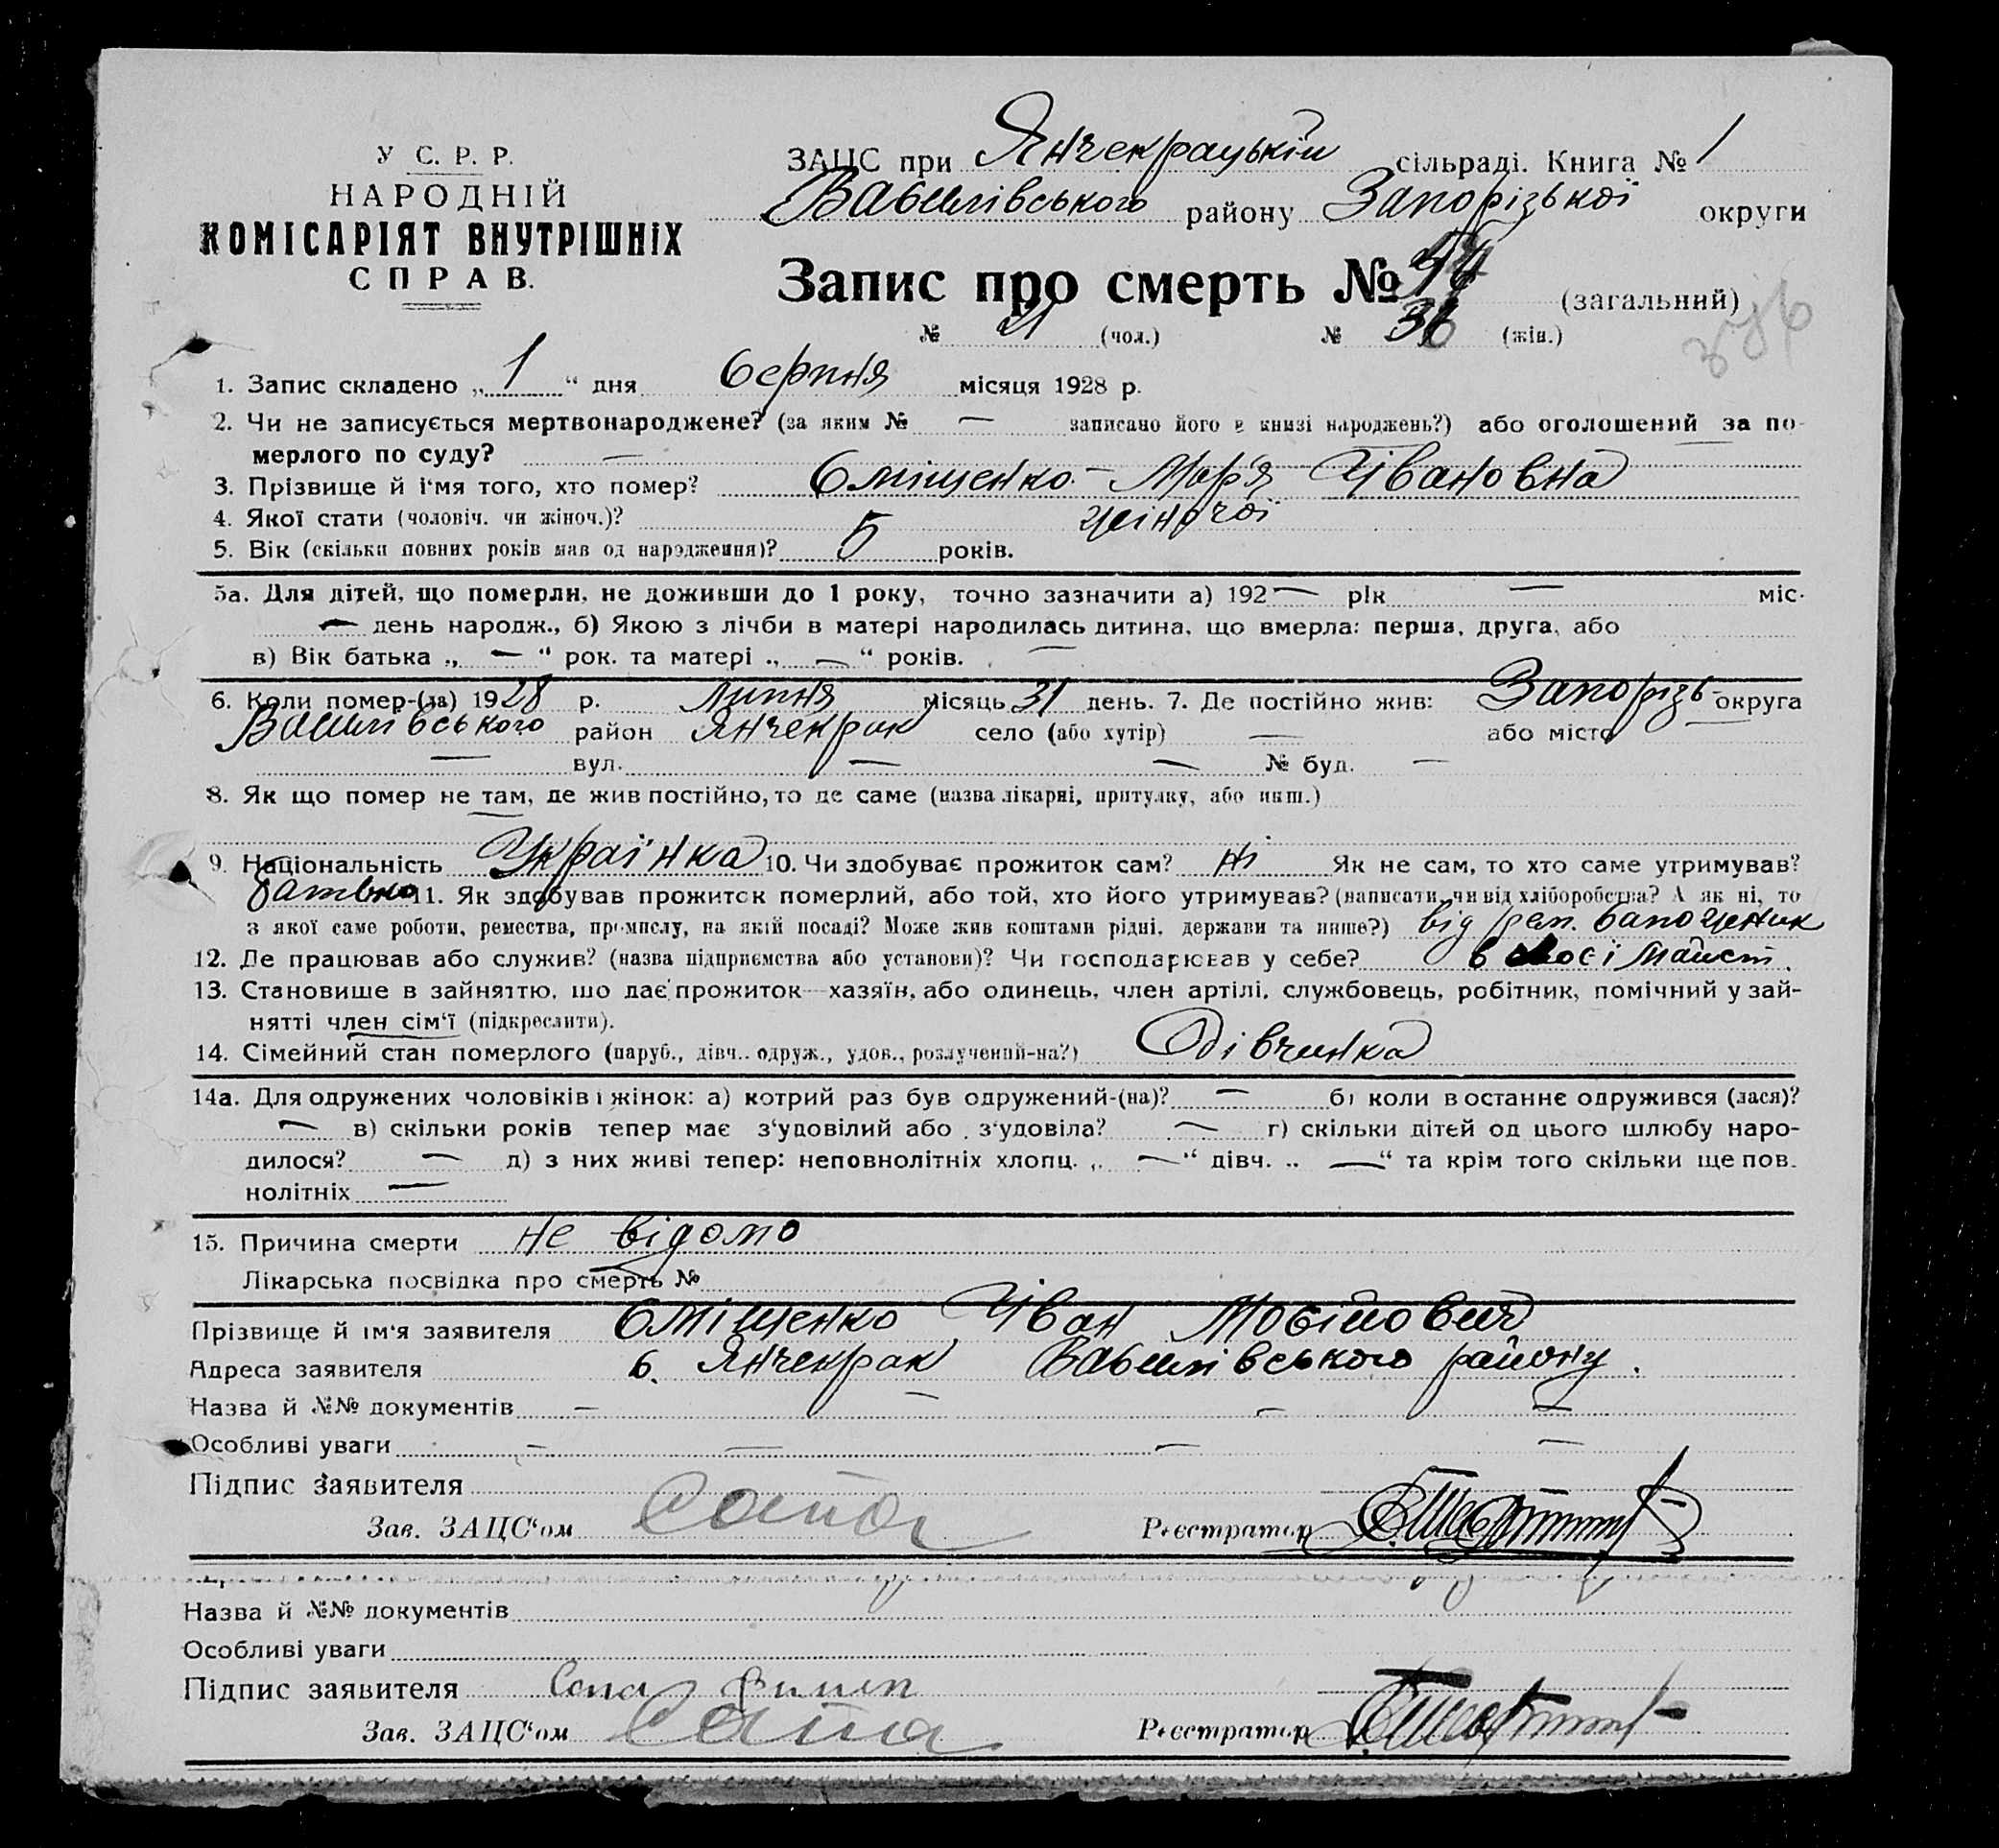 У С. Р. Р.
НАРОДНІЙ
КОМІСАРІЯТ ВНУТРІШНІХ
СПРАВ.
ЗАЦС при Янчекрацькій сільраді. Книга № 1
Василівського району Запорізької округи
Запис про смерть № (загальний)
№ 21 (чол.) № 36 (жін.)
1. Запис складено „ 1 “ дня Серпня місяця 1928 р.
2. Чи не записується мертвонароджене? (за яким № — записано його в книзі народжень?) або оголошений за по-
мерлого по суду? —
3. Прізвище й і‘мя того, хто помер? Оміщенко - Мар'я Івановна
4. Якої стати (чоловіч. чи жіноч.)? жіночої
5. Вік (скільки повних років мав од народження)? 5 років.
5а. Для дітей, що померли, не доживши до 1 року, точно зазначити а) 192 — рік — міс.
— день народж., б) Якою з лічби в матері народилась дитина, що вмерла: перша, друга, або
в) Вік батька „ — “ рок. та матері „ — “ років. —
6. Коли помер-(ла) 1928 р. липня місяць 31 день. 7. Де постійно жив: Запорізь округа
Василівського район Янчекрак село (або хутір) — або місто
— вул. — — № буд. —
8. Як що помер не там, де жив постійно, то де саме (назва лікарні, притулку, або инш.)
9. Національність Українка 10. Чи здобуває прожиток сам? ні Як не сам, то хто саме утримував?
батько 11. Як здобував прожиток померлий, або той, хто його утримував? (написати, чи від хліборобства? А як ні, то
з якої саме роботи, ремества, промислу, на якій посаді? Може жив коштами рідні, держави та инше?) від рем. сапожник
12. Де працював або служив? (назва підприємства або установи)? Чи господарював у себе? в своєї майст.
13. Становище в зайняттю, що дає прожиток—хазяїн, або одинець, член артілі, службовець, робітник, помічний у зай-
нятті член сім‘ї (підкреслити).
14. Сімейний стан померлого (паруб., дівч., одруж., удов., розлучений-на?) Дівчинка
14а. Для одружених чоловіків і жінок: а) котрий раз був одружений-(на)? — б) коли востаннє одружився (лася)?
— в) скільки років тепер має з‘удовілий або з‘удовіла? — г) скільки дітей од цього шлюбу наро-
дилося? — д) з них живі тепер: неповнолітніх хлопц. „ —“ дівч. „ —“ та крім того скільки ще пов.
нолітніх —
15. Причина смерти не відомо
Лікарська посвідка про смерть №
Прізвище й ім‘я заявителя Оміщенко Іван Мосійович
Адреса заявителя с. Янчекрак Василівського району.
Назва й №№ документів — — — —
Особливі уваги — — — —
Підпис заявителя
Зав. ЗАЦС‘ом Сапа Реєстратор
Назва й №№ документів
Особливі уваги
Підпис заявителя Сапа
Зав. ЗАЦС‘ом Сапа Реєстратор